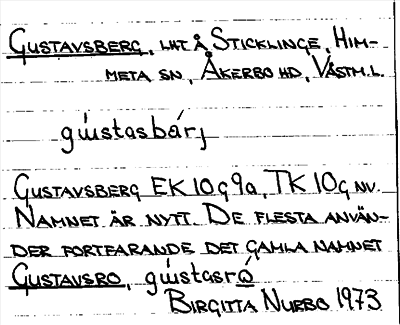 GUSTAVSBERG, LHT Å STICKLINGE, HIM-
META SN, ÅKERBO HD, VÄSTM.L.
gústasbárj
GUSTAVSBERG EK 10G9a, TK 10G NV.
NAMNET ÄR NYTT. DE FLESTA ANVÄN-
DER FORTFARANDE DET GAMLA NAMNET
GUSTAVSRO, gústasró
BIRGITTA NURBO 1973